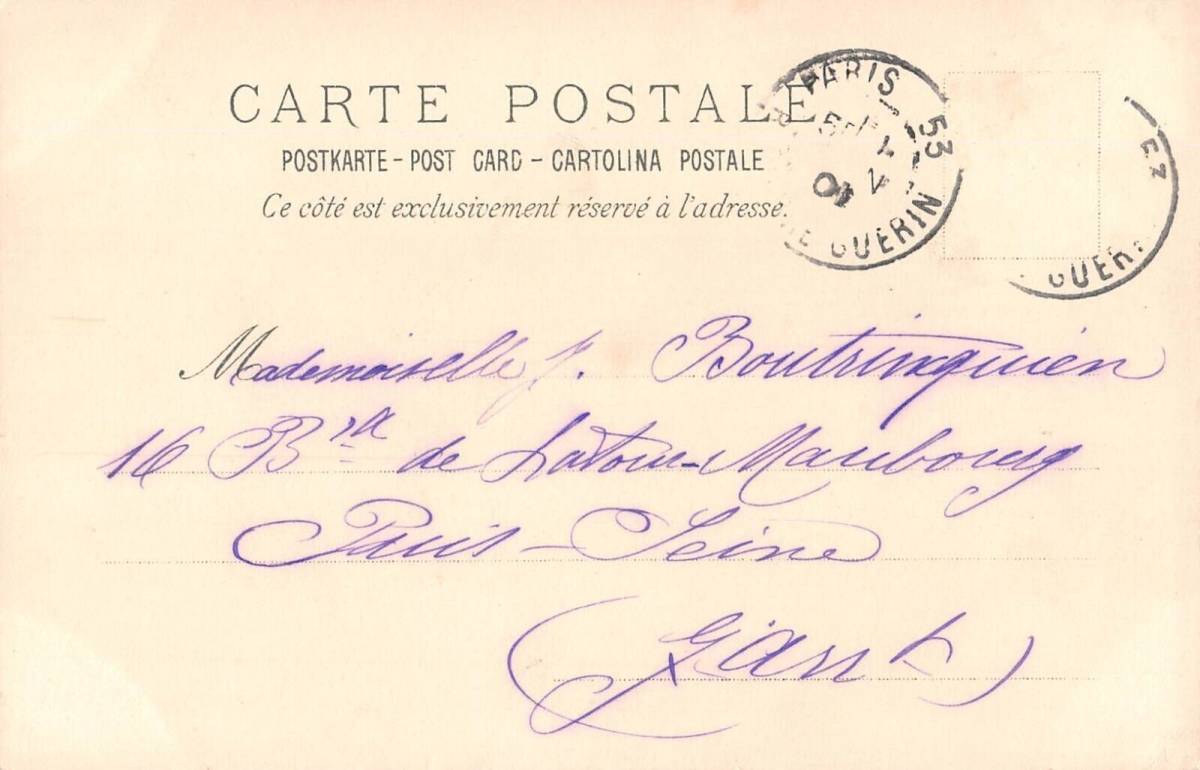 CARTE POSTALE
POSTKARTE - POST CARD - CARTOLINA POSTALE
Ce côté est exclusivement réservé à l'adresse.
PARIS 53
GUERIN
01
Mademoiselle J. Boutringuien
16 Bd de Latour-Maubourg
Paris - Seine